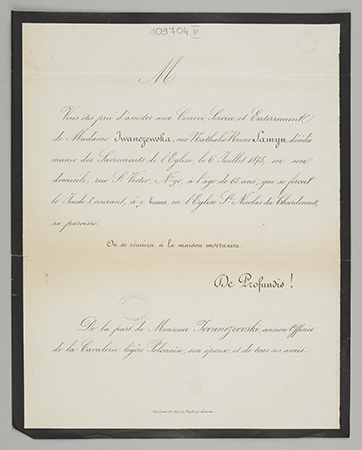 109704 III
M
Vous êtes prié d'assister aux Convoi, Service et Enterrement
de Madame Iwanozewska, née Nathalie Reine Samyn, décédée
munie des Sacrements de l'Eglise, le 6 Juillet 1875, en son
domicile, rue St Victor, à l'âge de 65 ans, qui se feront
le Jeudi 8 courant, à 9 heures, en l'Eglise St Nicolas du Chardonnet,
sa paroisse.
On se réunira à la maison mortuaire.
De Profundis !
De la part de Monsieur Iwanozewski, ancien Officier
de la Cavalerie légère Polonaise, son époux, et de tous ses amis.